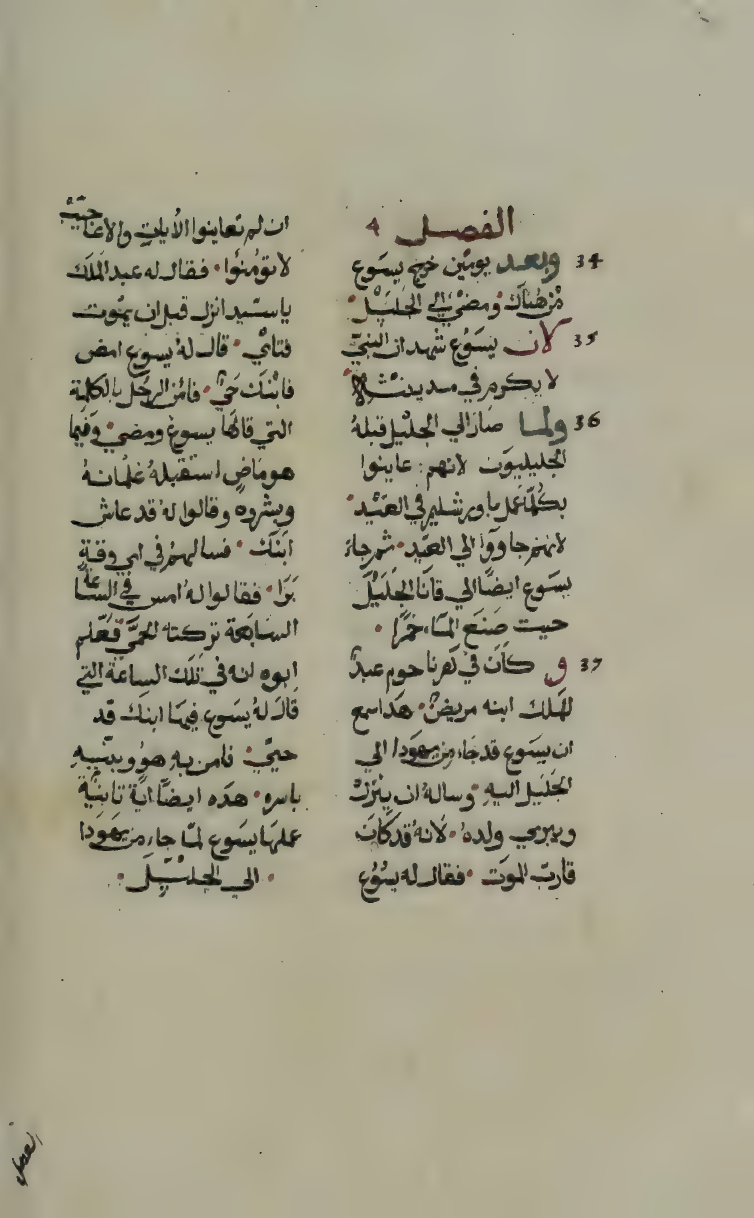 الفصل 4
34 وبعد يومين خرج يسوع
من هناك ومضي الي الجليل
35 لان يسوع شهد ان النبي
لا يكرم في مدينته
36 ولما صار الي الجليل قبله
الجليليون لانهم عاينوا
بكلما عمل باورشليم في العيد
لانهم جاووا الي العيد ثم جاء
يسوع ايضا الي قانا الجليل
حيت صنع الماء خمرا
37 و كان في كفرناحوم عبد
لملك ابنه مريض هدا سمع
ان يسوع قد جاء من يهودا الي
الجليل اليه وساله ان ينزل
ويبري ولده لانه قد كان
قارب الموت فقال له يسوع
ان لم تعاينوا الأيات والاعاجيب
لا تومنوا فقال له عبد الملك
يا سيد انزل قبل ان يموت
فتاي قال له يسوع امض
فابنك حي فامن الرجل بالكلمة
التي قالها يسوع ومضي وفيما
هو ماض استقبله غلمانه
وبشروه وقالوا له قد عاش
ابنك فسالهم في اي وقت
برا فقالوا له امس في الساعة
السابعة تركته الحمي فعلم
ابوه انه في تلك الساعة التي
قال له يسوع فيها ابنك قد
حيي فامن به هو وبيته
باسره هده ايضا اية تانية
عملها يسوع لما جاء من يهودا
الي الجليل
الفصل